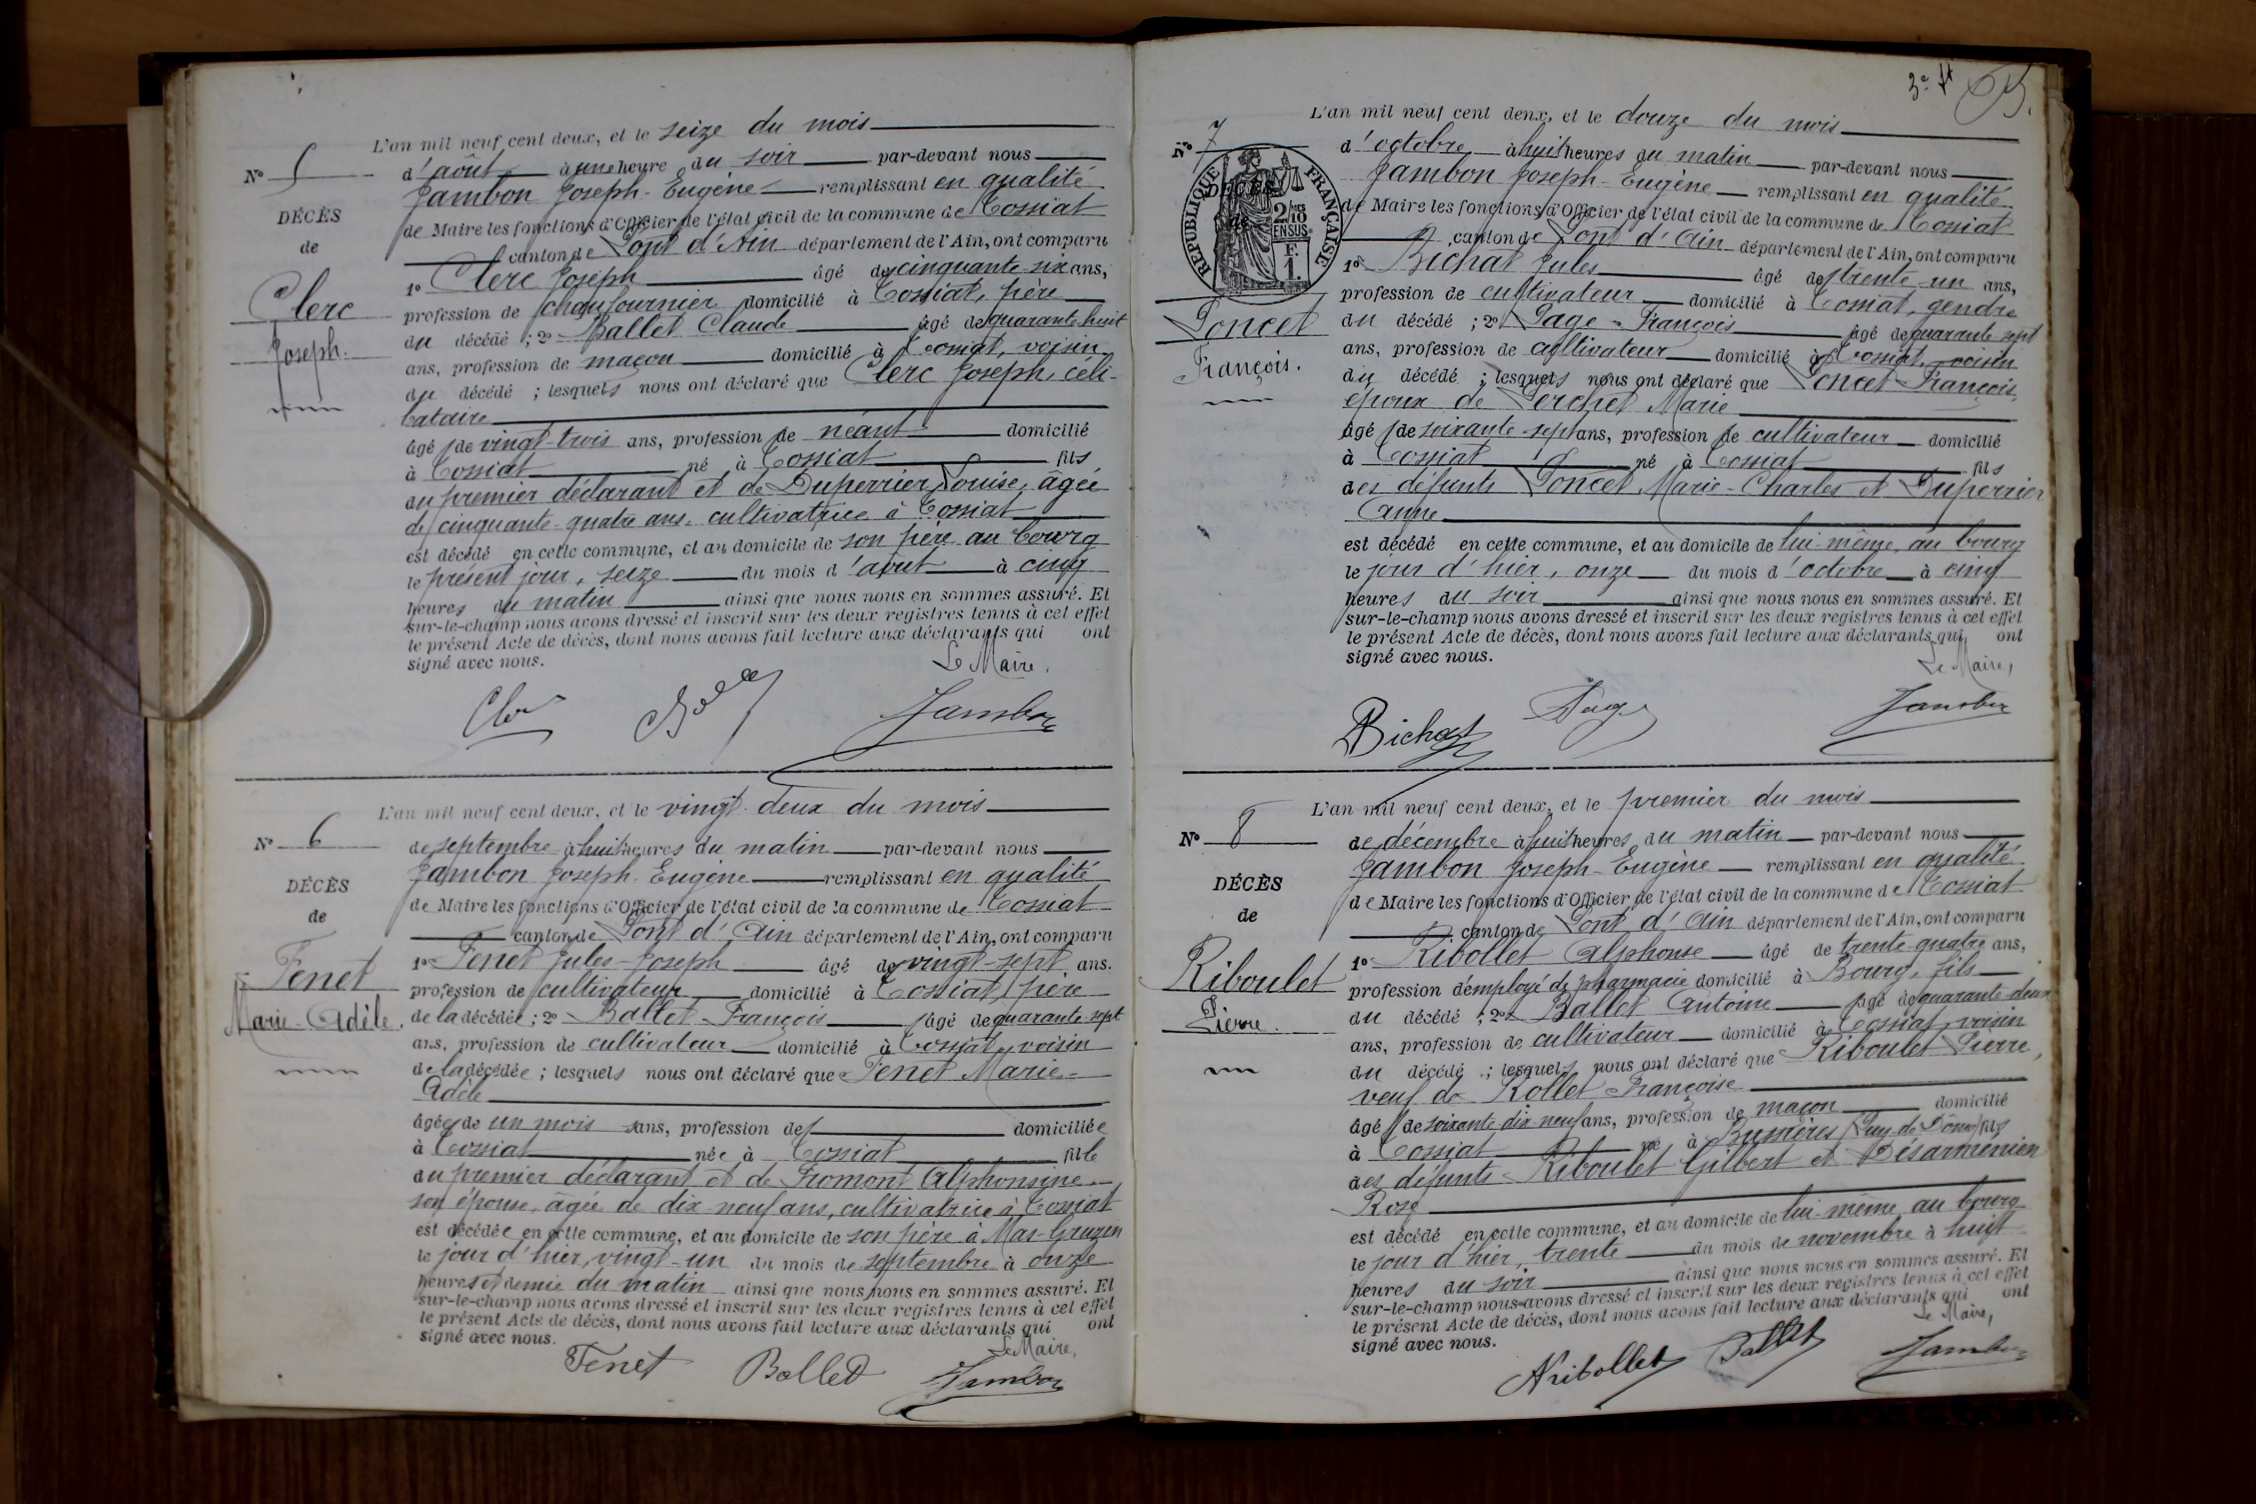 L'an mil neuf cent deux, et le seize du mois
N° 5
d'août à une heure du soir par-devant nous
Jambon Joseph-Eugène remplissant en qualité
DÉCÈS
de Maire les fonctions d'Officier de l'état civil de la commune de Tossiat
de
canton de Pont d'Ain département de l'Ain, ont comparu
1° Clerc Joseph âgé de cinquante-six ans,
Clerc
profession de chaufournier domicilié à Tossiat, père
du décédé ; 2° Ballet Claude âgé de quarante huit
Joseph.
ans, profession de maçon domicilié à Tossiat, voisin
du décédé ; lesquels nous ont déclaré que Clerc Joseph, céli-
bataire
âgé de vingt-trois ans, profession de néant domicilié
à Tossiat né à Tossiat fils
du premier déclarant et de Duperrier Louise, âgée
de cinquante-quatre ans, cultivatrice à Tossiat
est décédé en cette commune, et au domicile de son père au bourg
le présent jour, seize du mois d'août à cinq
heures du matin ainsi que nous nous en sommes assuré. Et
sur-le-champ nous avons dressé et inscrit sur les deux registres tenus à cet effet
le présent Acte de décès, dont nous avons fait lecture aux déclarants qui ont
signé avec nous.
Le Maire,
Jambon
L'an mil neuf cent deux, et le vingt-deux du mois
N° 6
de septembre à huit heures du matin par-devant nous
Jambon Joseph-Eugène remplissant en qualité
DÉCÈS
de Maire les fonctions d'Officier de l'état civil de la commune de Tossiat
de
canton de Pont d'Ain département de l'Ain, ont comparu
1° Fenet Jules-Joseph âgé de vingt-sept ans.
Fenet
profession de cultivateur domicilié à Tossiat, père
Marie-Adèle.
de la décédée ; 2° Ballet François âgé de quarante-sept
ans, profession de cultivateur domicilié à Tossiat, voisin
de la décédée ; lesquels nous ont déclaré que Fenet Marie-
Adèle
âgée de un mois ans, profession de domiciliée
à Tossiat née à Tossiat fille
du premier déclarant et de Fromont Alphonsine
son épouse, âgée de dix-neuf ans, cultivatrice à Tossiat
est décédée en cette commune, et au domicile de son père à Mas-Gruzen
le jour d'hier, vingt-un du mois de septembre à onze
heures et demie du matin ainsi que nous nous en sommes assuré. Et
sur-le-champ nous avons dressé et inscrit sur les deux registres tenus à cet effet
le présent Acte de décès, dont nous avons fait lecture aux déclarants qui ont
signé avec nous.
Le Maire,
Fenet Ballet Jambon
3e
L'an mil neuf cent deux, et le douze du mois
N° 7
d'octobre à huit heures du matin par-devant nous
Jambon Joseph-Eugène remplissant en qualité
DÉCÈS
de
RÉPUBLIQUE FRANÇAISE
2/10 EN SUS
F.
1.
de Maire les fonctions d'Officier de l'état civil de la commune de Tossiat
canton de Pont d'Ain département de l'Ain, ont comparu
1° Bichat Jules âgé de trente-un ans,
profession de cultivateur domicilié à Tossiat, gendre
Poncet
du décédé ; 2° Page François âgé de quarante sept
François.
ans, profession de cultivateur domicilié à Tossiat, voisin
du décédé ; lesquels nous ont déclaré que Poncet François,
époux de Perchet Marie
âgé de soixante-sept ans, profession de cultivateur domicilié
à Tossiat né à Tossiat fils
des défunts Poncet Marie-Charles et Duperrier
Anne
est décédé en cette commune, et au domicile de lui-même, au bourg
le jour d'hier, onze du mois d'octobre à cinq
heures du soir ainsi que nous nous en sommes assuré. Et
sur-le-champ nous avons dressé et inscrit sur les deux registres tenus à cet effet
le présent Acte de décès, dont nous avons fait lecture aux déclarants qui ont
signé avec nous.
Le Maire,
Bichat Page Jambon
L'an mil neuf cent deux, et le premier du mois
N° 8
de décembre à huit heures du matin par-devant nous
Jambon Joseph-Eugène remplissant en qualité
DÉCÈS
de Maire les fonctions d'Officier de l'état civil de la commune de Tossiat
de
canton de Pont d'Ain département de l'Ain, ont comparu
1° Ribollet Alphonse âgé de trente-quatre ans,
Riboulet
profession d'employé de pharmacie domicilié à Bourg, fils
Pierre.
du décédé ; 2° Ballet Antoine âgé de quarante-deux
ans, profession de cultivateur domicilié à Tossiat, voisin
du décédé ; lesquels nous ont déclaré que Riboulet Pierre,
veuf de Rollet Françoise
âgé de soixante dix neuf ans, profession de maçon domicilié
à Tossiat né à Bumières Puy de Dôme fils
des défunts Riboulet Gilbert et Désarménien
Rose
est décédé en cette commune, et au domicile de lui-même, au bourg
le jour d'hier, trente du mois de novembre à huit
heures du soir ainsi que nous nous en sommes assuré. Et
sur-le-champ nous avons dressé et inscrit sur les deux registres tenus à cet effet
le présent Acte de décès, dont nous avons fait lecture aux déclarants qui ont
signé avec nous.
Le Maire,
Aribollet Ballet Jambon